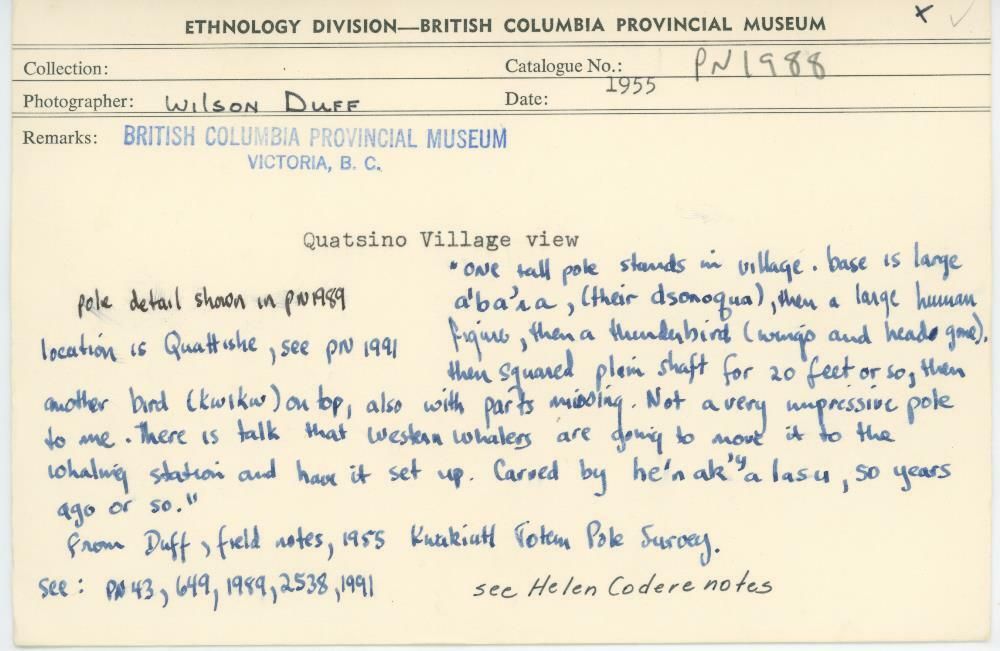 ETHNOLOGY DIVISION—BRITISH COLUMBIA PROVINCIAL MUSEUM
Collection:
Catalogue No.: PN 1988
Photographer: WILSON DUFF
Date: 1955
Remarks: BRITISH COLUMBIA PROVINCIAL MUSEUM
VICTORIA, B. C.
Quatsino Village view
"One tall pole stands in village. base is large
pole detail shown in PN1989
a'ba'sa, (their dsonoqua), then a large human
location is Quattishe, see PN 1991
figure, then a thunderbird (wings and heads gone).
then squared plain shaft for 20 feet or so, then
another bird (kwikw) on top, also with parts missing. Not a very impressive pole
to me. There is talk that Western Whalers are going to move it to the
whaling station and have it set up. Carved by he'nak'ʸa lasu, 50 years
ago or so."
From Duff, field notes, 1955 Kwakiutl Totem Pole Survey.
see: PN 43, 649, 1989, 2538, 1991
see Helen Codere notes